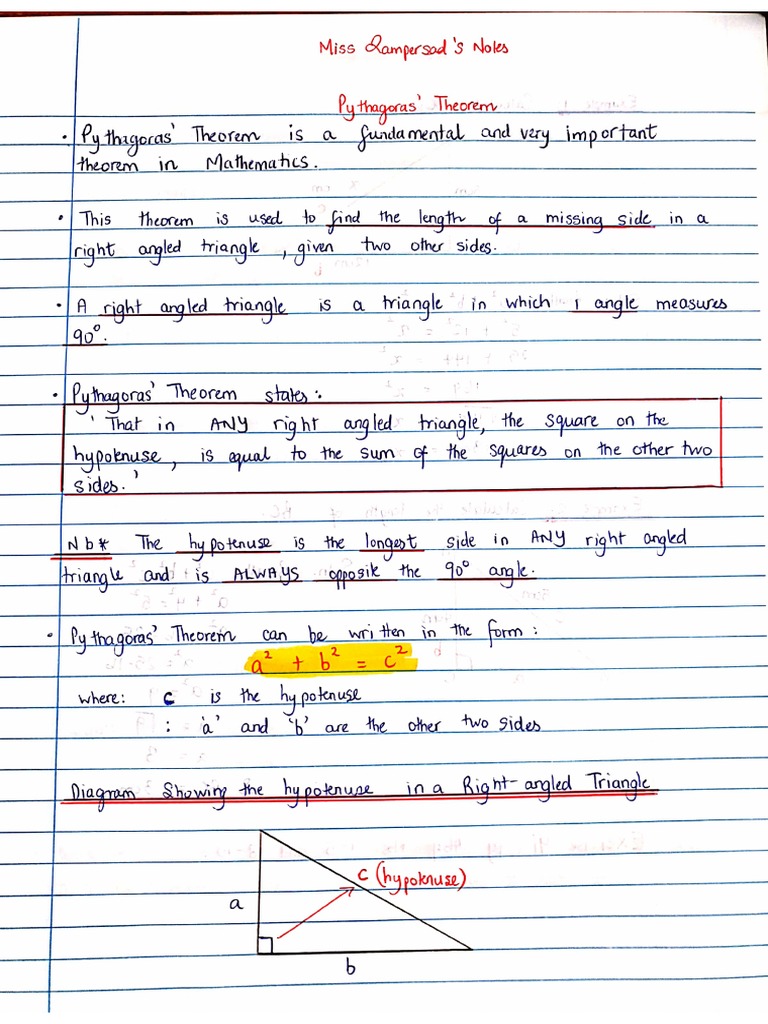 Miss Rampersad's Notes
Pythagoras' Theorem
• Pythagoras' Theorem is a fundamental and very important
theorem in Mathematics.
• This theorem is used to find the length of a missing side in a
right angled triangle, given two other sides.
• A right angled triangle is a triangle in which 1 angle measures
90°.
• Pythagoras' Theorem states:
'That in ANY right angled triangle, the square on the
hypotenuse, is equal to the sum of the squares on the other two
sides.'
Nb* The hypotenuse is the longest side in ANY right angled
triangle and is ALWAYS opposite the 90° angle.
• Pythagoras' Theorem can be written in the form:
a² + b² = c²
where: c is the hypotenuse
: 'a' and 'b' are the other two sides
Diagram Showing the hypotenuse in a Right-angled Triangle
c (hypotenuse)
a
b